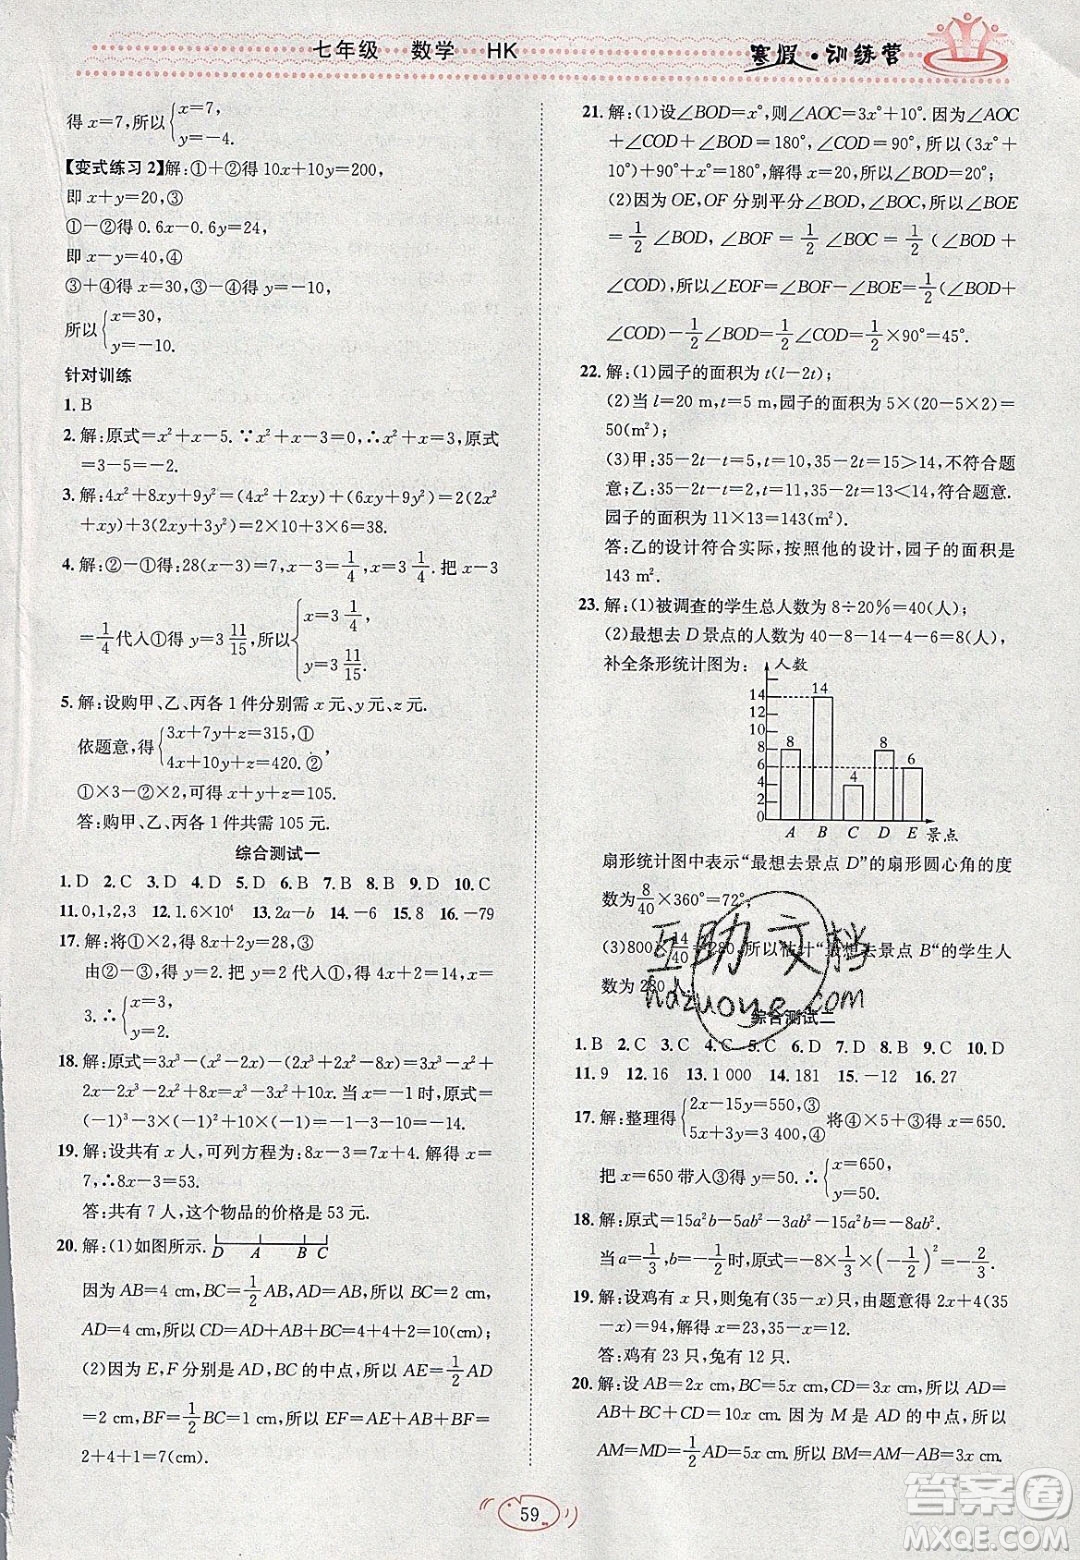 七年级 数学 HK
寒假·训练营
得x=7,所以{x=7, y=-4.
【变式练习2】解:①+②得10x+10y=200,
即x+y=20,③
①-②得0.6x-0.6y=24,
即x-y=40,④
③+④得x=30,③-④得y=-10,
所以{x=30, y=-10.
针对训练
1. B
2. 解:原式=x²+x-5.∵x²+x-3=0,∴x²+x=3,∴原式
=3-5=-2.
3. 解:4x²+8xy+9y²=(4x²+2xy)+(6xy+9y²)=2(2x²
+xy)+3(2xy+3y²)=2×10+3×6=38.
4. 解:②-①得:28(x-3)=7,x-3=1/4,x=3 1/4.把x-3
=1/4代入①得y=3 11/15,所以{x=3 1/4, y=3 11/15.
5. 解:设购甲、乙、丙各1件分别需x元、y元、z元.
依题意,得{3x+7y+z=315,① 4x+10y+z=420.②
①×3-②×2,可得x+y+z=105.
答:购甲、乙、丙各1件共需105元.
综合测试一
1. D 2. C 3. D 4. A 5. D 6. B 7. B 8. D 9. D 10. C
11. 0,1,2,3 12. 1.6×10⁴ 13. 2a-b 14. -6 15. 8 16. -79
17. 解:将①×2,可得8x+2y=28③
由②-③可得y=2.把y=2代入①,得4x+2=14,得x=
3.∴{x=3, y=2.
18. 解:原式=3x³-(x²-2x)-2x³+(6x-2x²)=3x³-x²+
2x-2x³+6x-2x²=x³-3x²+8x.当x=-1时,原式=
(-1)³-3×(-1)²+8×(-1)=-1-3-8=-12.
19. 解:设共有x人,可列方程为:8x-3=7x+4.解得x=
7,∴8x-3=53.
答:共有7人,这个物品的价格是53元.
20. 解:(1)如图所示. D A B C
因为AB=4 cm,BC=1/2AB,AD=AB,所以BC=2 cm,
AD=4 cm,所以CD=AD+AB+BC=4+4+2=10(cm);
(2)因为E,F分别是AD,BC的中点,所以AE=1/2AD
=2 cm,BF=1/2BC=1 cm,所以EF=AE+AB+BF=2
+4+1=7(cm).
21. 解:(1)设∠BOD=x°,则∠AOC=3x°+10°.因为∠AOC
+∠COD+∠BOD=180°,∠COD=90°,所以(3x°+
10°)+90°+x°=180°,解得x=20,所以∠BOD=20°;
(2)因为OE,OF分别平分∠BOD,∠BOC,所以∠BOE
=1/2∠BOD,∠BOF=1/2∠BOC=1/2(∠BOD+
∠COD),所以∠EOF=∠BOF-∠BOE=1/2(∠BOD+
∠COD)-1/2∠BOD=1/2∠COD=1/2×90°=45°.
22. 解:(1)园子的面积为t(l-2t);
(2)当l=20 m,t=5 m时,园子的面积为5×(20-5×2)=
50(m²);
(3)甲:35-2t-t=5,t=10,35-2t=15>14,不符合题
意;乙:35-2t-t=2,t=11,35-2t=13<14,符合题意.
园子的面积为11×13=143(m²).
答:乙的设计符合实际,按照他的设计,园子的面积是
143 m².
23. 解:(1)被调查的学生总人数为8÷20%=40(人);
(2)最想去D景点的人数为40-8-14-4-6=8(人),
补全条形统计图为:
人数
14 12 10 8 6 4 2 0
8 14 4 8 6
A B C D E 景点
扇形统计图中表示“最想去景点D”的扇形圆心角的度
数为8/40×360°=72°;
(3)800×14/40=280,所以估计“最想去景点B”的学生人
数为280人.
综合测试二
1. B 2. C 3. C 4. C 5. C 6. D 7. D 8. B 9. C 10. D
11. 9 12. 16 13. 1 000 14. 181 15. -12 16. 27
17. 解:整理得{2x-15y=550,③ 5x+15y=4 000,④ 将④+③得x=650.
把x=650带入③得y=50.所以{x=650, y=50.
18. 解:原式=15a²b-5ab²-3ab²-15a²b=-8ab²,
当a=1/3,b=-1/2时,原式=-8×1/3×(-1/2)²=-2/3.
19. 解:设鸡有x只,则兔有(35-x)只,由题意得2x+4(35
-x)=94,解得x=23,35-x=12.
答:鸡有23只,兔有12只.
20. 解:设AB=2x cm,BC=5x cm,CD=3x cm,所以AD=
AB+BC+CD=10x cm.因为M是AD的中点,所以
AM=MD=1/2AD=5x cm,所以BM=AM-AB=5x-
59
互助文档
hdzuoye.com
答案圈
MXQE.COM